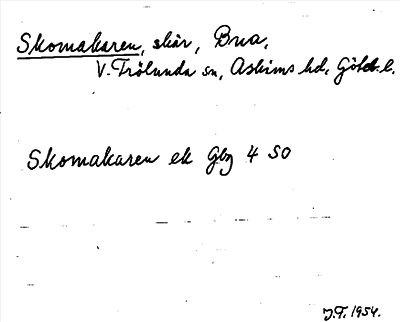 Skomakaren, skär, Bua,
V. Frölunda sn, Askims hd, Göteb. l.
Skomakaren ek Gbg 4 SO
J.F. 1954.